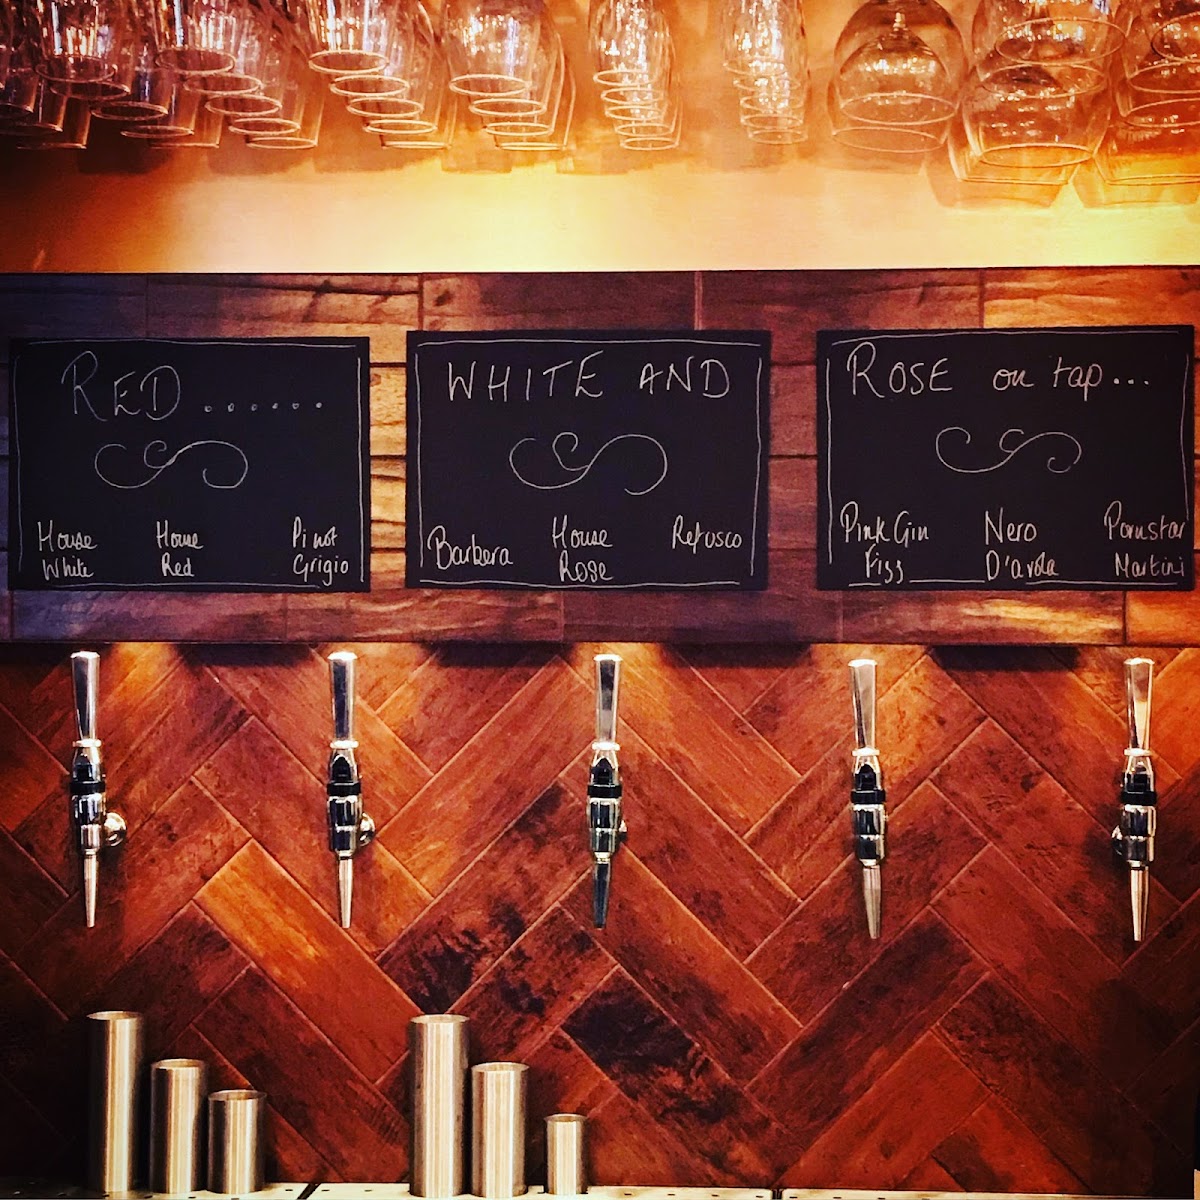 RED......
House
White
House
Red
Pinot
Grigio
WHITE AND
Barbera
House
Rose
Refosco
ROSE on tap...
Pink Gin
Fizz
Nero
D'avola
Pornstar
Martini